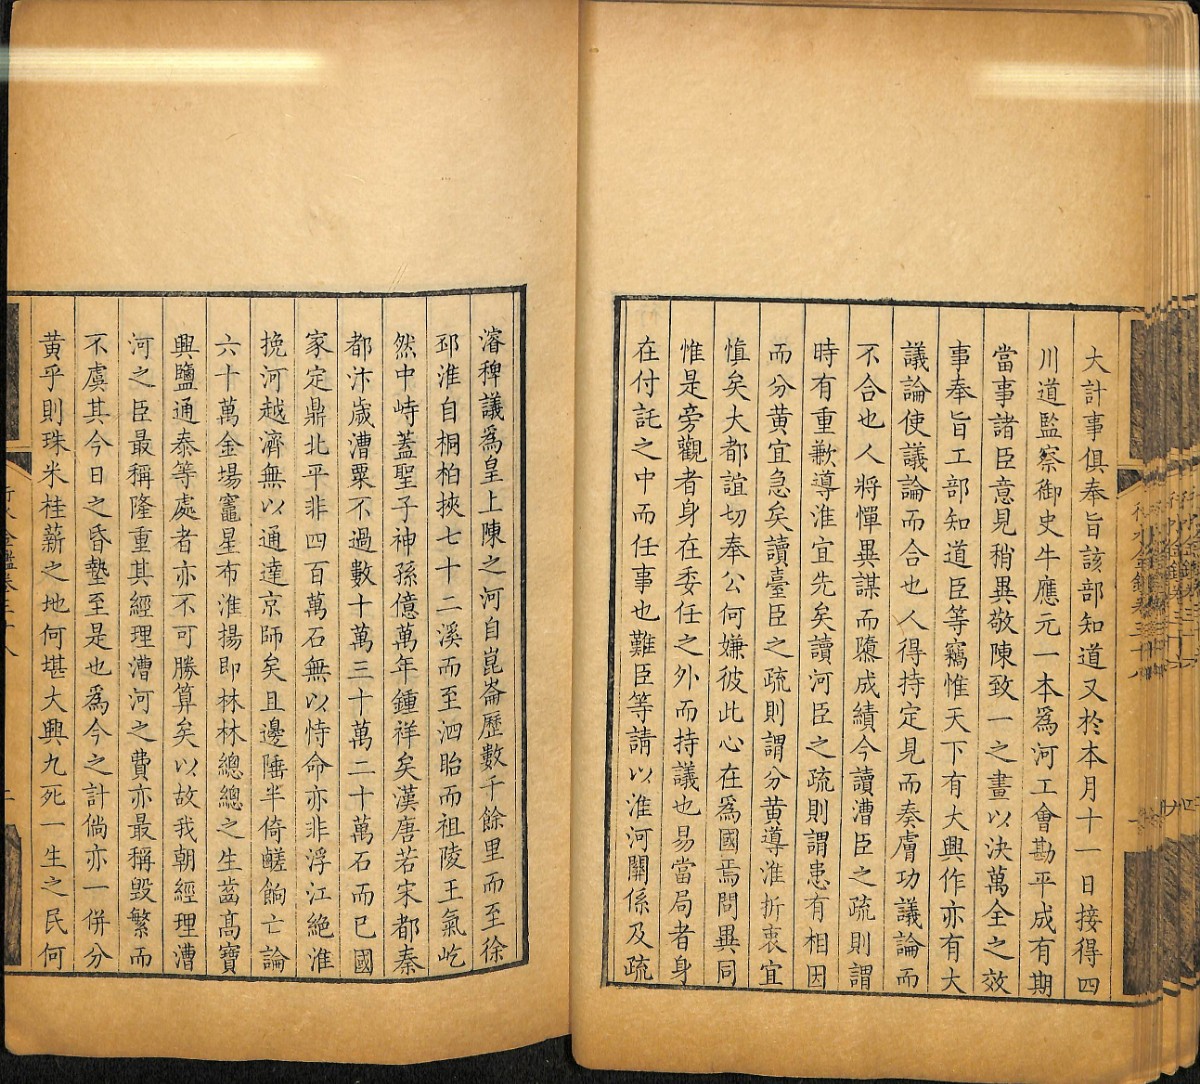 大計事俱奉旨該部知道又於本月十一日接得四
川道監察御史牛應元一本爲河工會勘平成有期
當事諸臣意見稍異敬陳致一之畫以決萬全之效
事奉旨工部知道臣等竊惟天下有大興作亦有大
議論使議論而合也人得持定見而奏膚功議論而
不合也人將憚異謀而隳成績今讀漕臣之疏則謂
時有重歉導淮宜先矣讀河臣之疏則謂患有相因
而分黄宜急矣讀臺臣之疏則謂分黄導淮折衷宜
愼矣大都誼切奉公何嫌彼此心在爲國焉問異同
惟是旁觀者身在委任之外而持議也易當局者身
在付託之中而任事也難臣等請以淮河關係及疏
濬稗議爲皇上陳之河自崑崙歷數千餘里而至徐
邳淮自桐柏挾七十二溪而至泗胎而祖陵王氣屹
然中峙蓋聖子神孫億萬年鍾祥矣漢唐若宋都秦
都汴歲漕粟不過數十萬三十萬二十萬石而已國
家定鼎北平非四百萬石無以恃命亦非浮江絶淮
挽河越濟無以通達京師矣且邊陲半倚鹺餉亡論
六十萬金場竈星布淮揚即林林總總之生齒髙寶
興鹽通泰等處者亦不可勝算矣以故我朝經理漕
河之臣最稱隆重其經理漕河之費亦最稱毀繁而
不虞其今日之昏墊至是也爲今之計倘亦一併分
黄乎則珠米桂薪之地何堪大興九死一生之民何
行水金鑑卷三十八
二